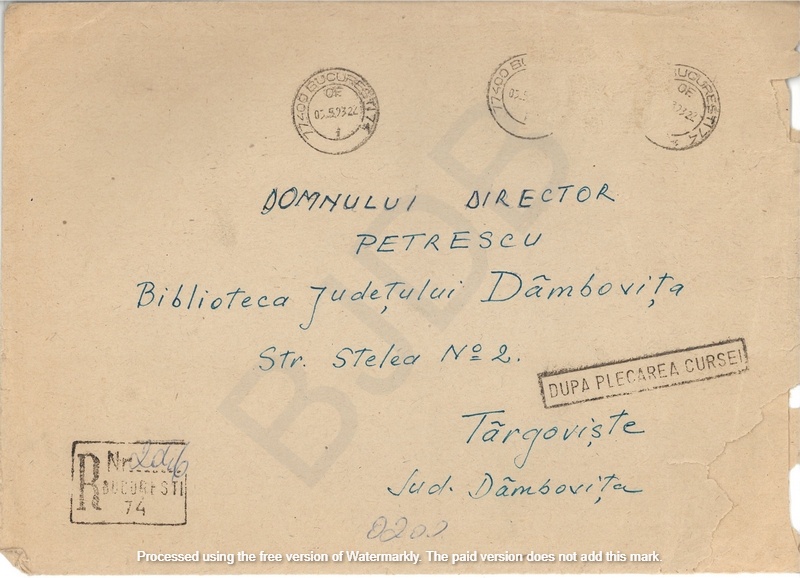 77400 BUCURESTI 74
OF.
05.5.93-22
77400 BU
UCURESTI 74
OF.
DOMNULUI DIRECTOR
PETRESCU
Biblioteca Județului Dâmbovița
Str. Stelea Nº 2.
DUPA PLECAREA CURSEI
Târgoviște
Jud. Dâmbovița
R Nr.
BUCURESTI
74
0200
BJDB
Processed using the free version of Watermarkly. The paid version does not add this mark.